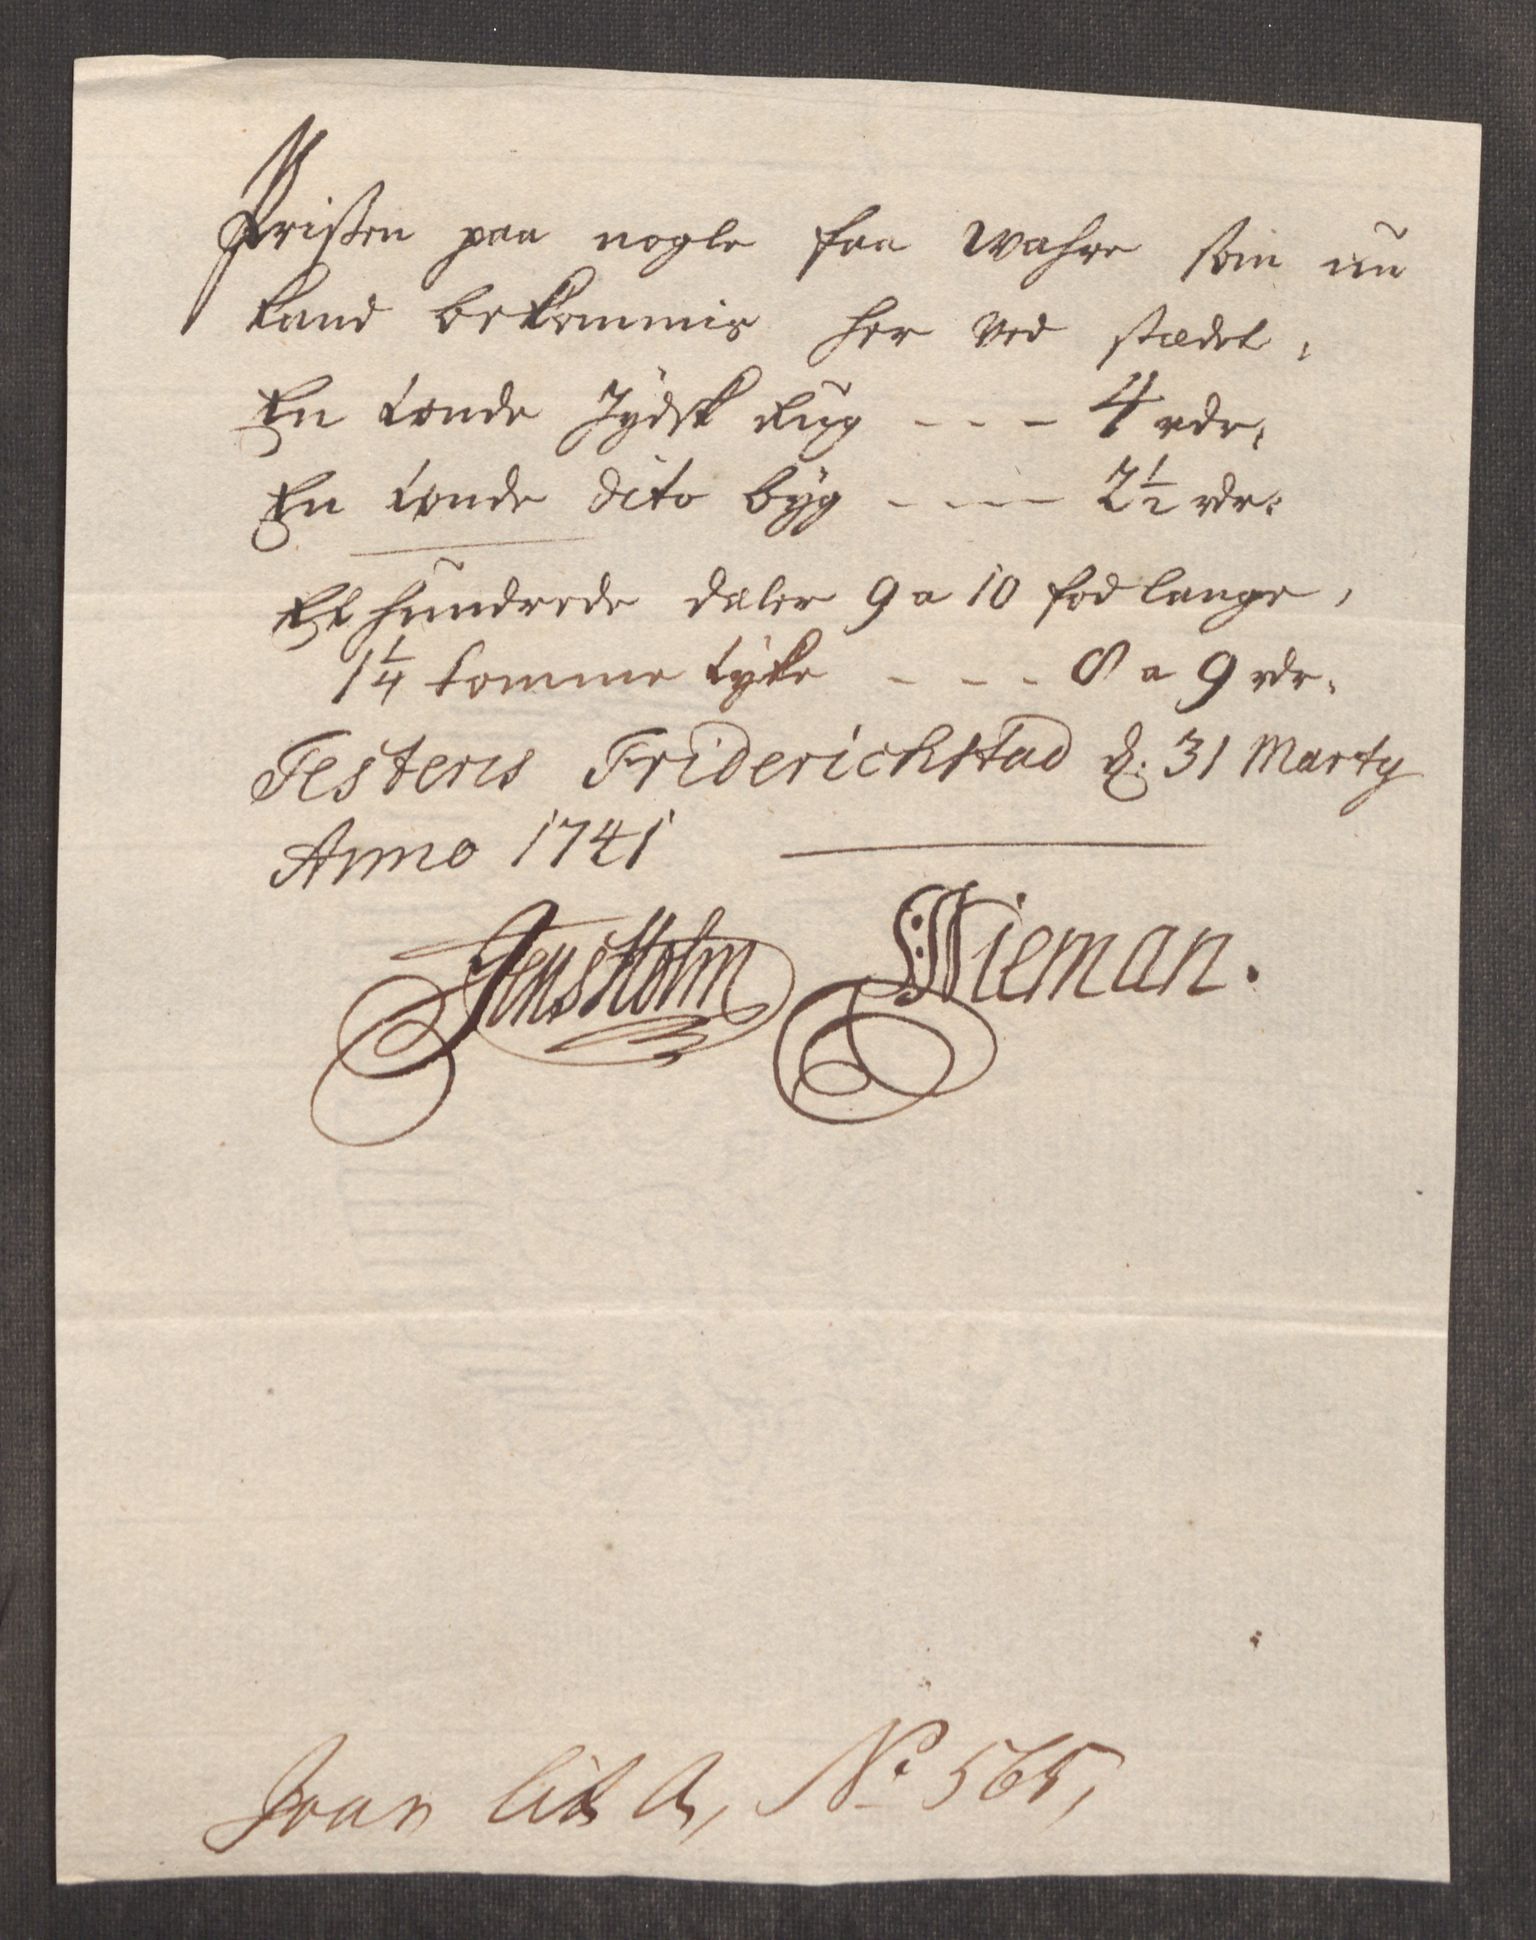 Prisen paa nogle faa wahre som nu
kand bekommis her ved stædet,
En tønde Jydsk Rug - - - 4 rdr,
En tønde dito byg - - - 2½ rdr:
Et hundrede dæler 9 a 10 fod lange,
1¼ tomme tyke - - - 8 a 9 rdr,
Testeris Friderichstad d: 31 Marty
Anno 1741
Jens Holm Nieman.
Lit A, No 565,